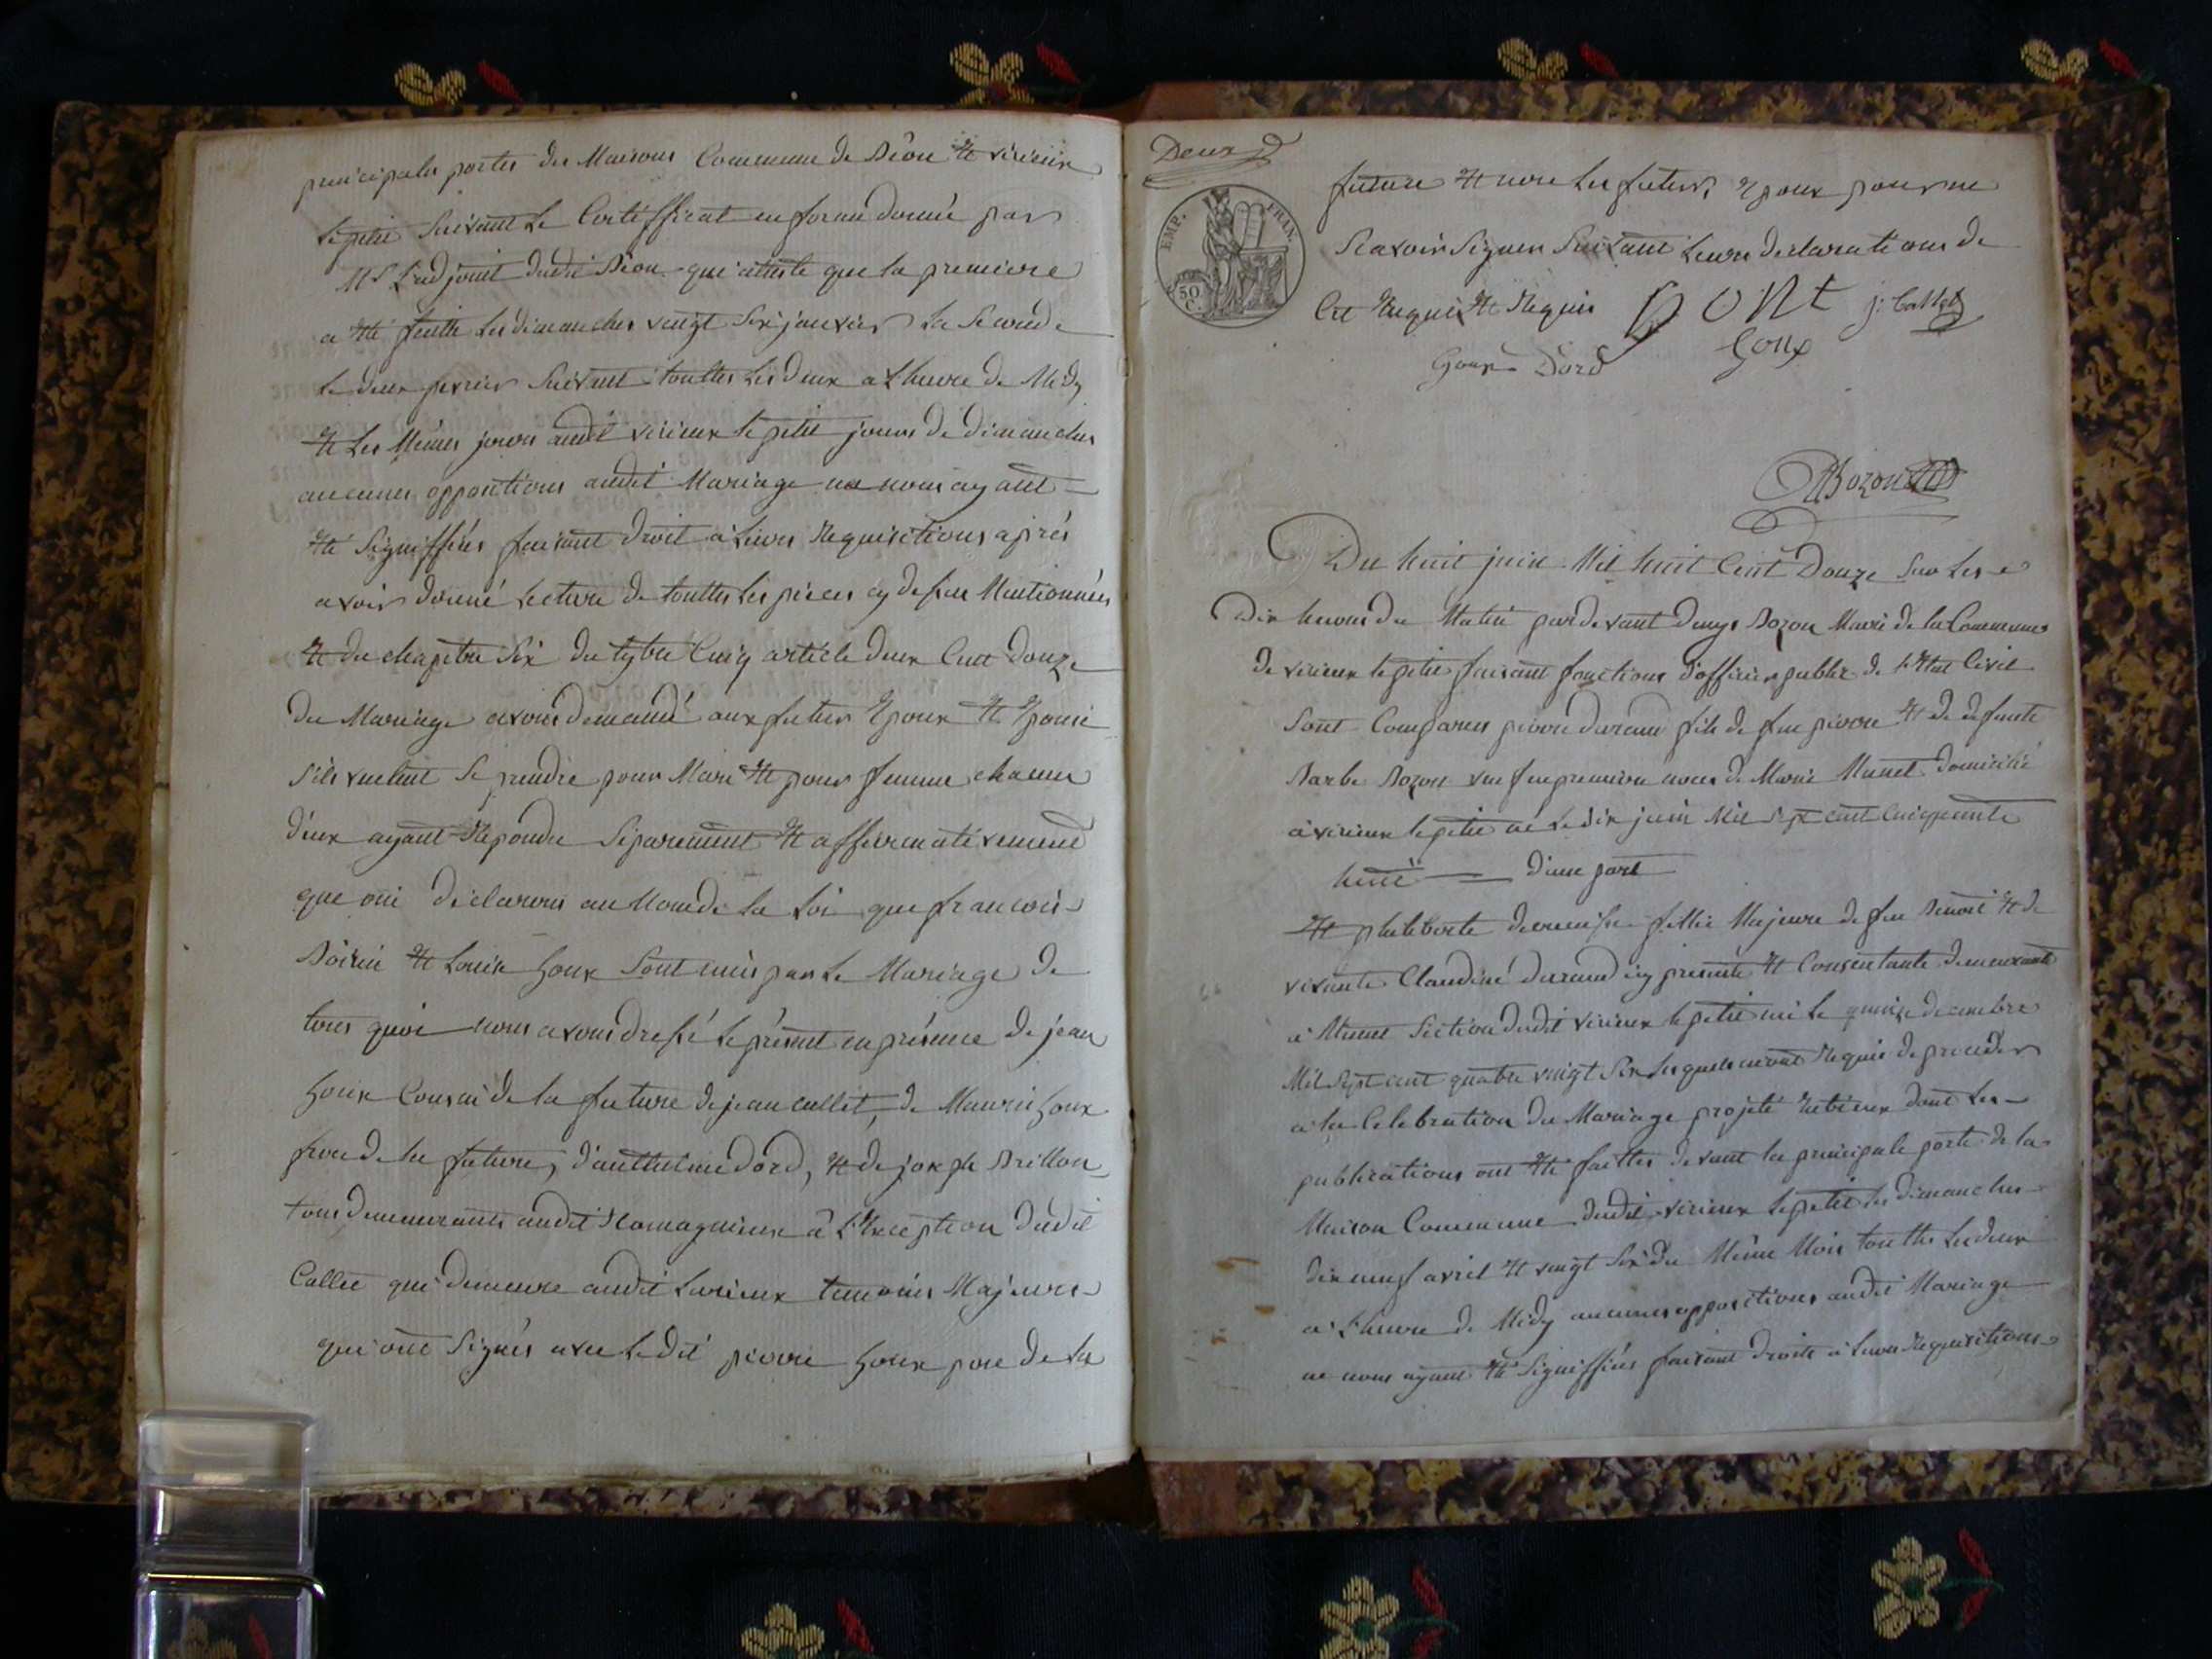 principales portes des Maisons Commune de Béon et virieux
le petit suivant le Certifficat en forme donné par
Mr Ladjoint dudit Béon qui atteste que la premiere
a été faitte les dimanches vingt six janvier la seconde
le deux fevrier suivant touttes les deux a Lheure de Midy
et les Mêmes jours audit virieux le petit jours de dimanches
aucunes oppositions audit Mariage ne nous ayant
été Signiffiées faisant droit à Leurs Requisitions après
avoir donné Lecture de touttes les pièces cy dessus Mentionnées
et du chapitre six du tytre Cinq article deux Cent douze
du Mariage avons demandé aux futur Epoux et Epouse
s'ils veulent se prendre pour Mari et pour femme chacun
d'eux ayant Repondu Séparement et affirmativement
que oui déclarons au Nom de la Loi que francois
et Louise Goux Sont unis par Le Mariage de
tous quoi nous avons dressé le présent en présence de jean
Goux Cousin de la future de jean callet, de Maurice Goux
frere de la future, d'anthelme dord, et de joseph Brillon
tous demeurants audit Romagnieux à L'Exception dudit
Callet qui demeure audit Temoins Majeurs
qui ont Signés avec Ledit pierre Goux pere de la
Deux
EMP. FRAN.
50 C.
future et non les futurs Epoux pour ne
Scavoir Signer Suivant Leurs declarations de
Ce Enquis et Requis DONt j: Callet
Goux Dord Goux
Bozon
Du huit juin Mil huit Cent Douze Sur les
Dix heures du Matin pardevant Denys Bozon Maire de la Commune
de virieux le petit faisant fonctions d'officier public de L'Etat Civil
Sont Comparus pierre durand fils de feu pierre et de defunte
Barbe Bozon veuf en premiere noces de Marie Munet domicilié
à virieux le petit né le dix juin Mil Sept cent Cinquante
huit d'une part
et philiberte fillie Majeure de feu Benoit et de
vivante Claudine durand icy presente et Consentante demeurante
à Munet Section dudit virieux le petit née le quinze decembre
Mil Sept cent quatre vingt Six lesquels nous ont Requis de proceder
a la Celebration du Mariage projeté Entre eux dont Les
publications ont été faittes devant la principale porte de la
Maison Commune dudit virieux le petit les dimanches
dix neuf avril et vingt Six du Même Mois touttes les deux
à Lheure de Midy aucunes oppositions audit Mariage
ne nous ayant été Signiffiées faisant droits à Leurs Requisitions